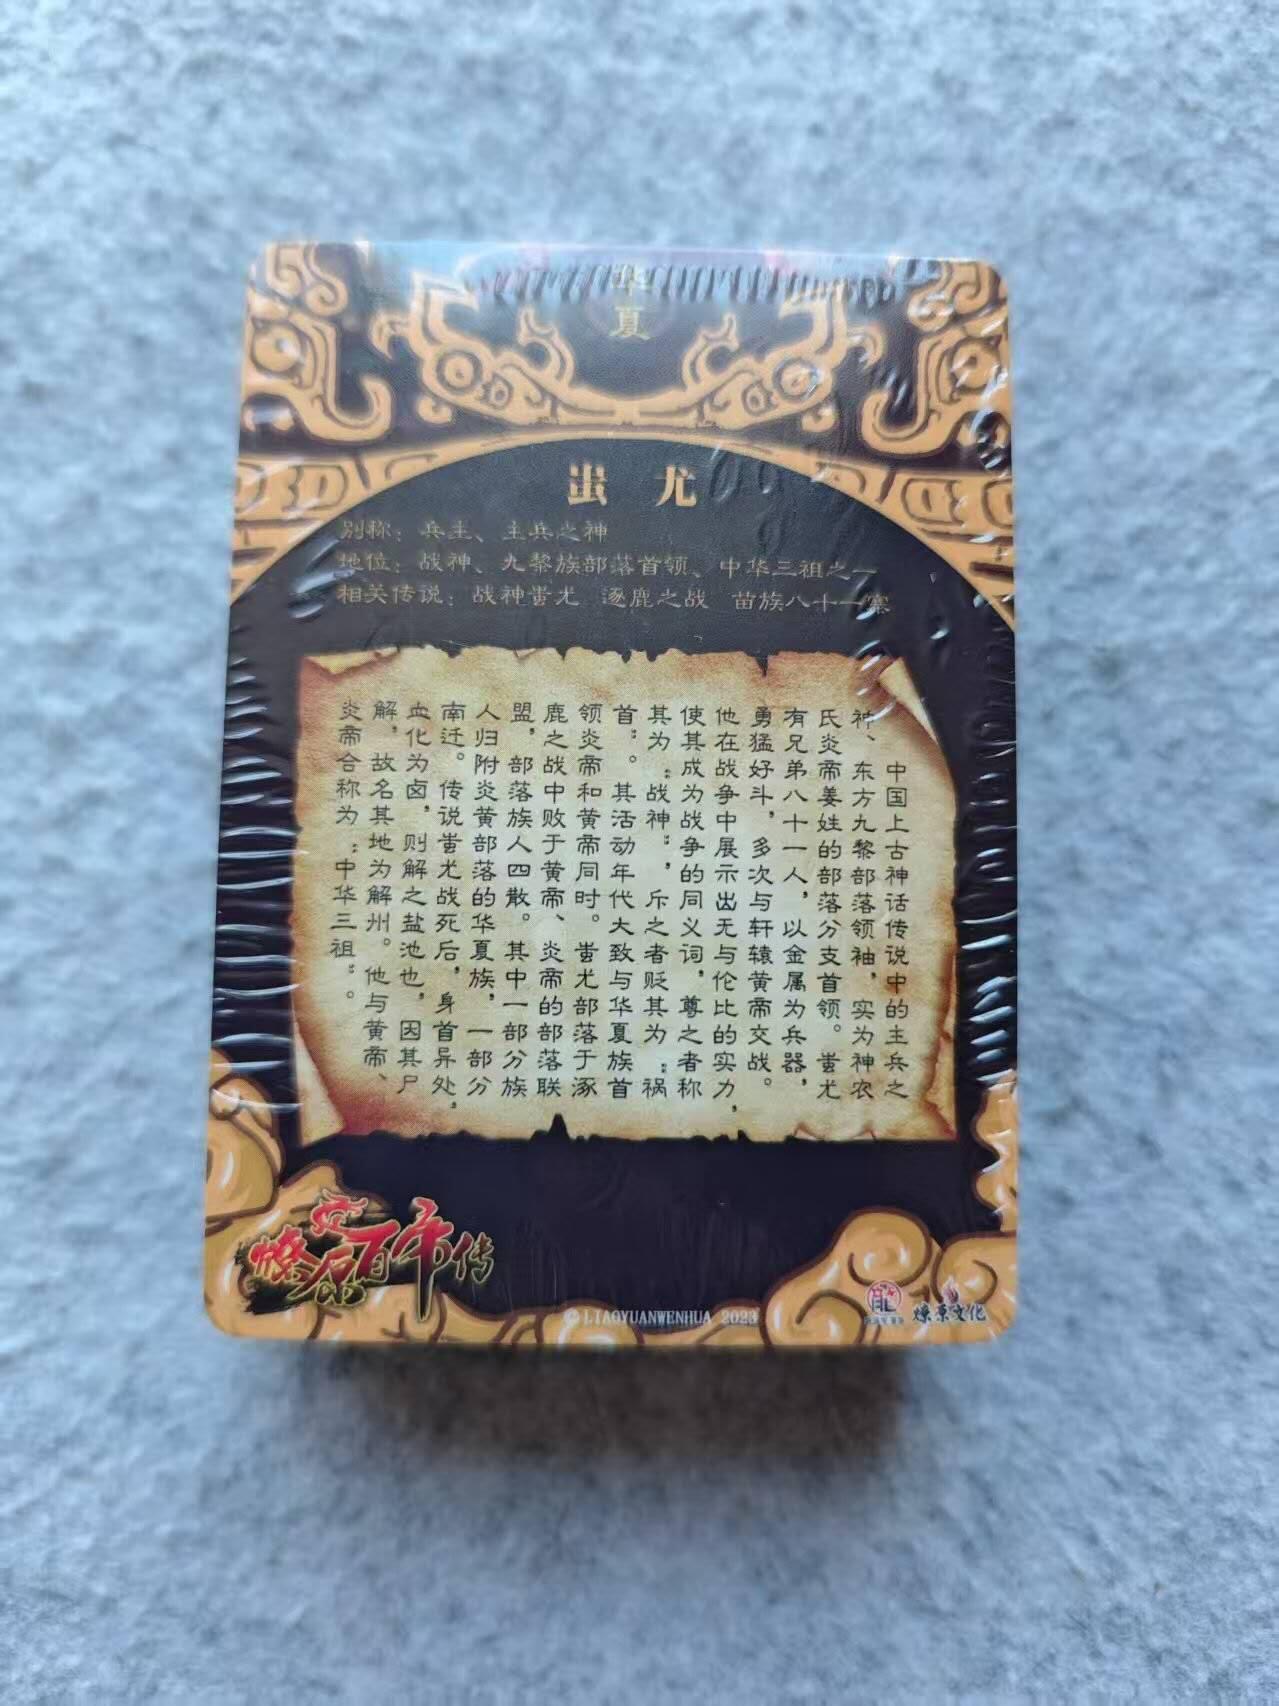 华
夏
蚩 尤
别称：兵主、主兵之神
地位：战神、九黎族部落首领、中华三祖之一
相关传说：战神蚩尤 逐鹿之战 苗族八十一寨
中国上古神话传说中的主兵之
神、东方九黎部落领袖，实为神农
氏炎帝姜姓的部落分支首领。蚩尤
有兄弟八十一人，以金属为兵器，
勇猛好斗，多次与轩辕黄帝交战。
他在战争中展示出无与伦比的实力，
使其成为战争的同义词，尊之者称
其为“战神”，斥之者贬其为“祸
首”。其活动年代大致与华夏族首
领炎帝和黄帝同时。蚩尤部落于涿
鹿之战中败于黄帝、炎帝的部落联
盟，部落族人四散。其中一部分族
人归附炎黄部落的华夏族，一部分
南迁。传说蚩尤战死后，身首异处，
血化为卤，则解之盐池也，因其尸
解，故名其地为解州。他与黄帝、
炎帝合称为“中华三祖”。
燎原百帝传
© LIAOYUANWENHUA 2023
燎原文化